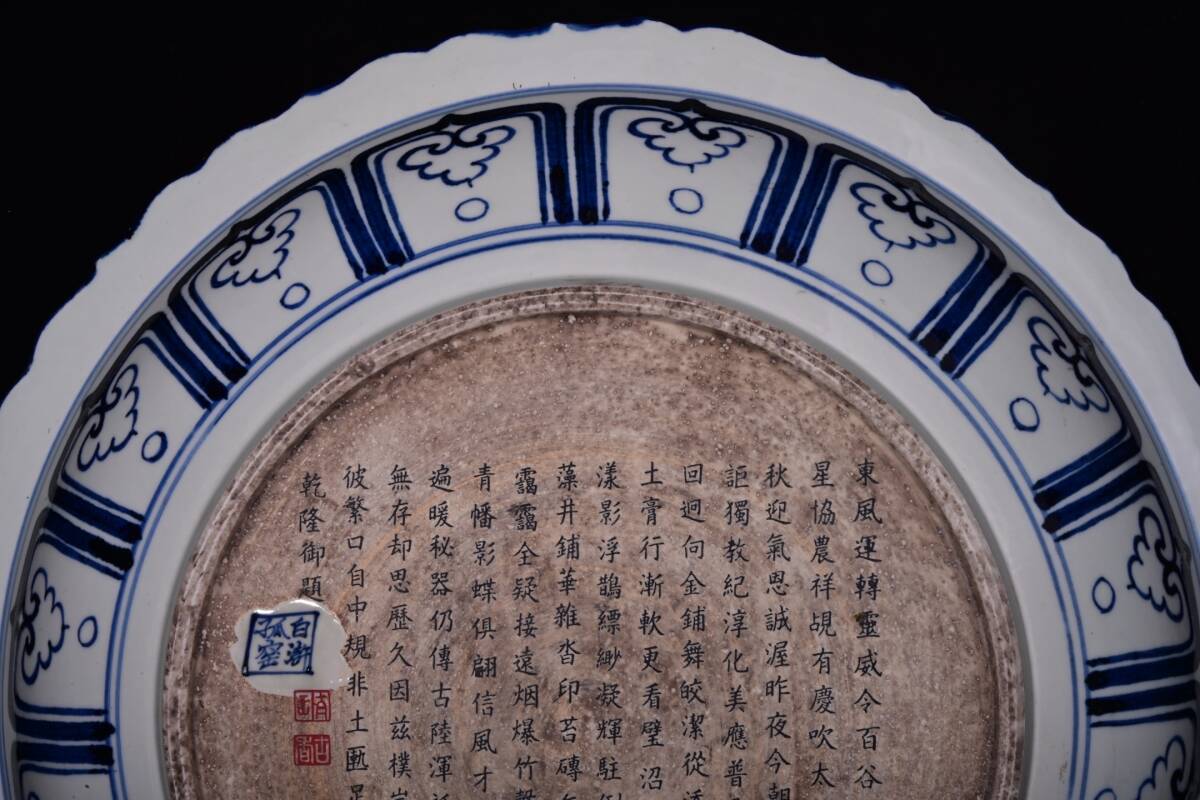 東風運轉靈威令百谷
星協農祥覘有慶吹太
秋迎氣恩誠渥昨夜今朝
詎獨教紀淳化美應普
回迴向金鋪舞皎潔從
土膏行漸軟更看璧沼
漾影浮鵲縹緲凝輝駐
藻井鋪華雜沓印苔磚
靄靄全疑接遠烟爆竹
青幡影蝶俱翩信風才
遍暖秘器仍傳古陸渾
無存却思歷久因茲樸
彼繁口自中規非土匭
乾隆御題
白湖
孤窑
古香